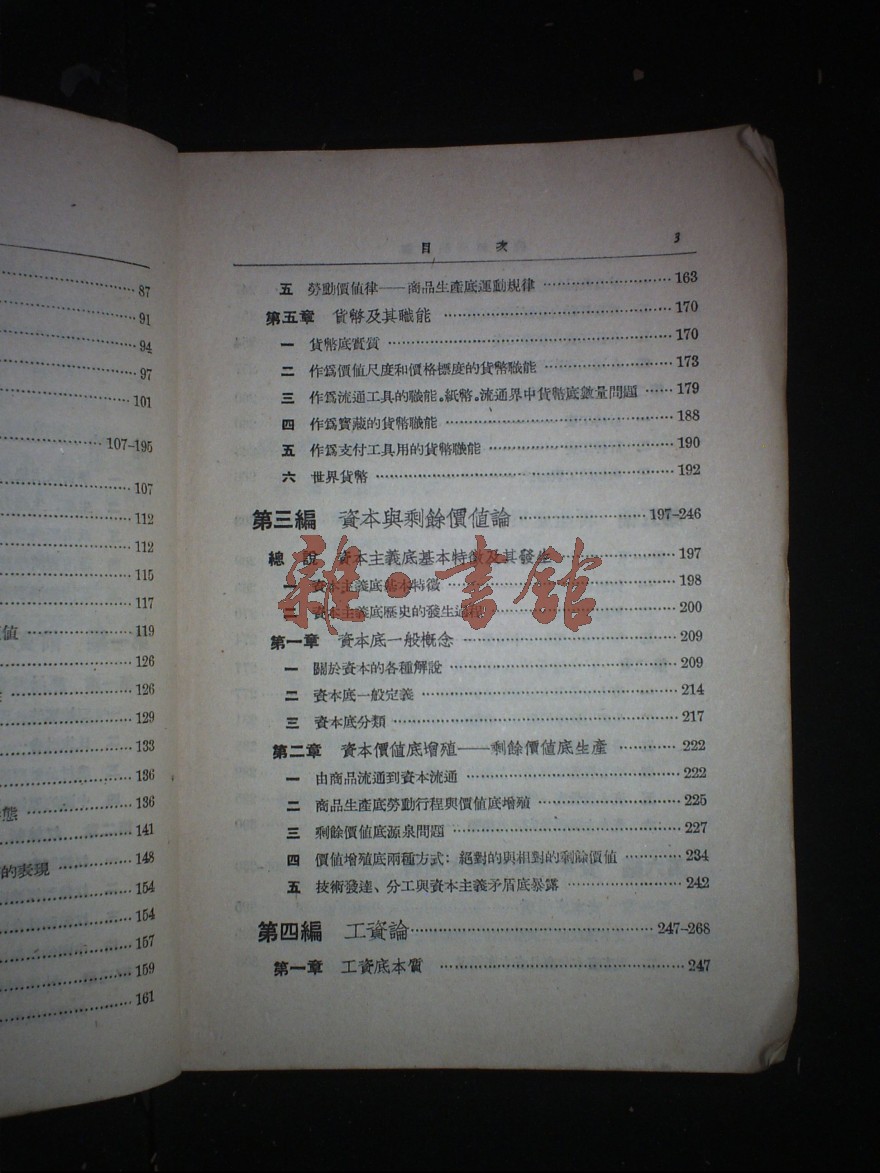 87
91
94
97
101
107-195
107
112
112
115
117
值 119
126
126
129
133
136
態 136
141
的表現 148
154
154
157
159
161
目 次 3
五 勞動價值律——商品生產底運動規律 163
第五章 貨幣及其職能 170
一 貨幣底實質 170
二 作爲價值尺度和價格標度的貨幣職能 173
三 作爲流通工具的職能.紙幣.流通界中貨幣底數量問題 179
四 作爲寶藏的貨幣職能 188
五 作爲支付工具用的貨幣職能 190
六 世界貨幣 192
第三編 資本與剩餘價值論 197-246
總說 資本主義底基本特徵及其發生 197
一 資本主義底基本特徵 198
二 資本主義底歷史的發生過程 200
雜·書館
第一章 資本底一般概念 209
一 關於資本的各種解說 209
二 資本底一般定義 214
三 資本底分類 217
第二章 資本價值底增殖——剩餘價值底生產 222
一 由商品流通到資本流通 222
二 商品生產底勞動行程與價值底增殖 225
三 剩餘價值底源泉問題 227
四 價值增殖底兩種方式：絕對的與相對的剩餘價值 234
五 技術發達、分工與資本主義矛盾底暴露 242
第四編 工資論 247-268
第一章 工資底本質 247